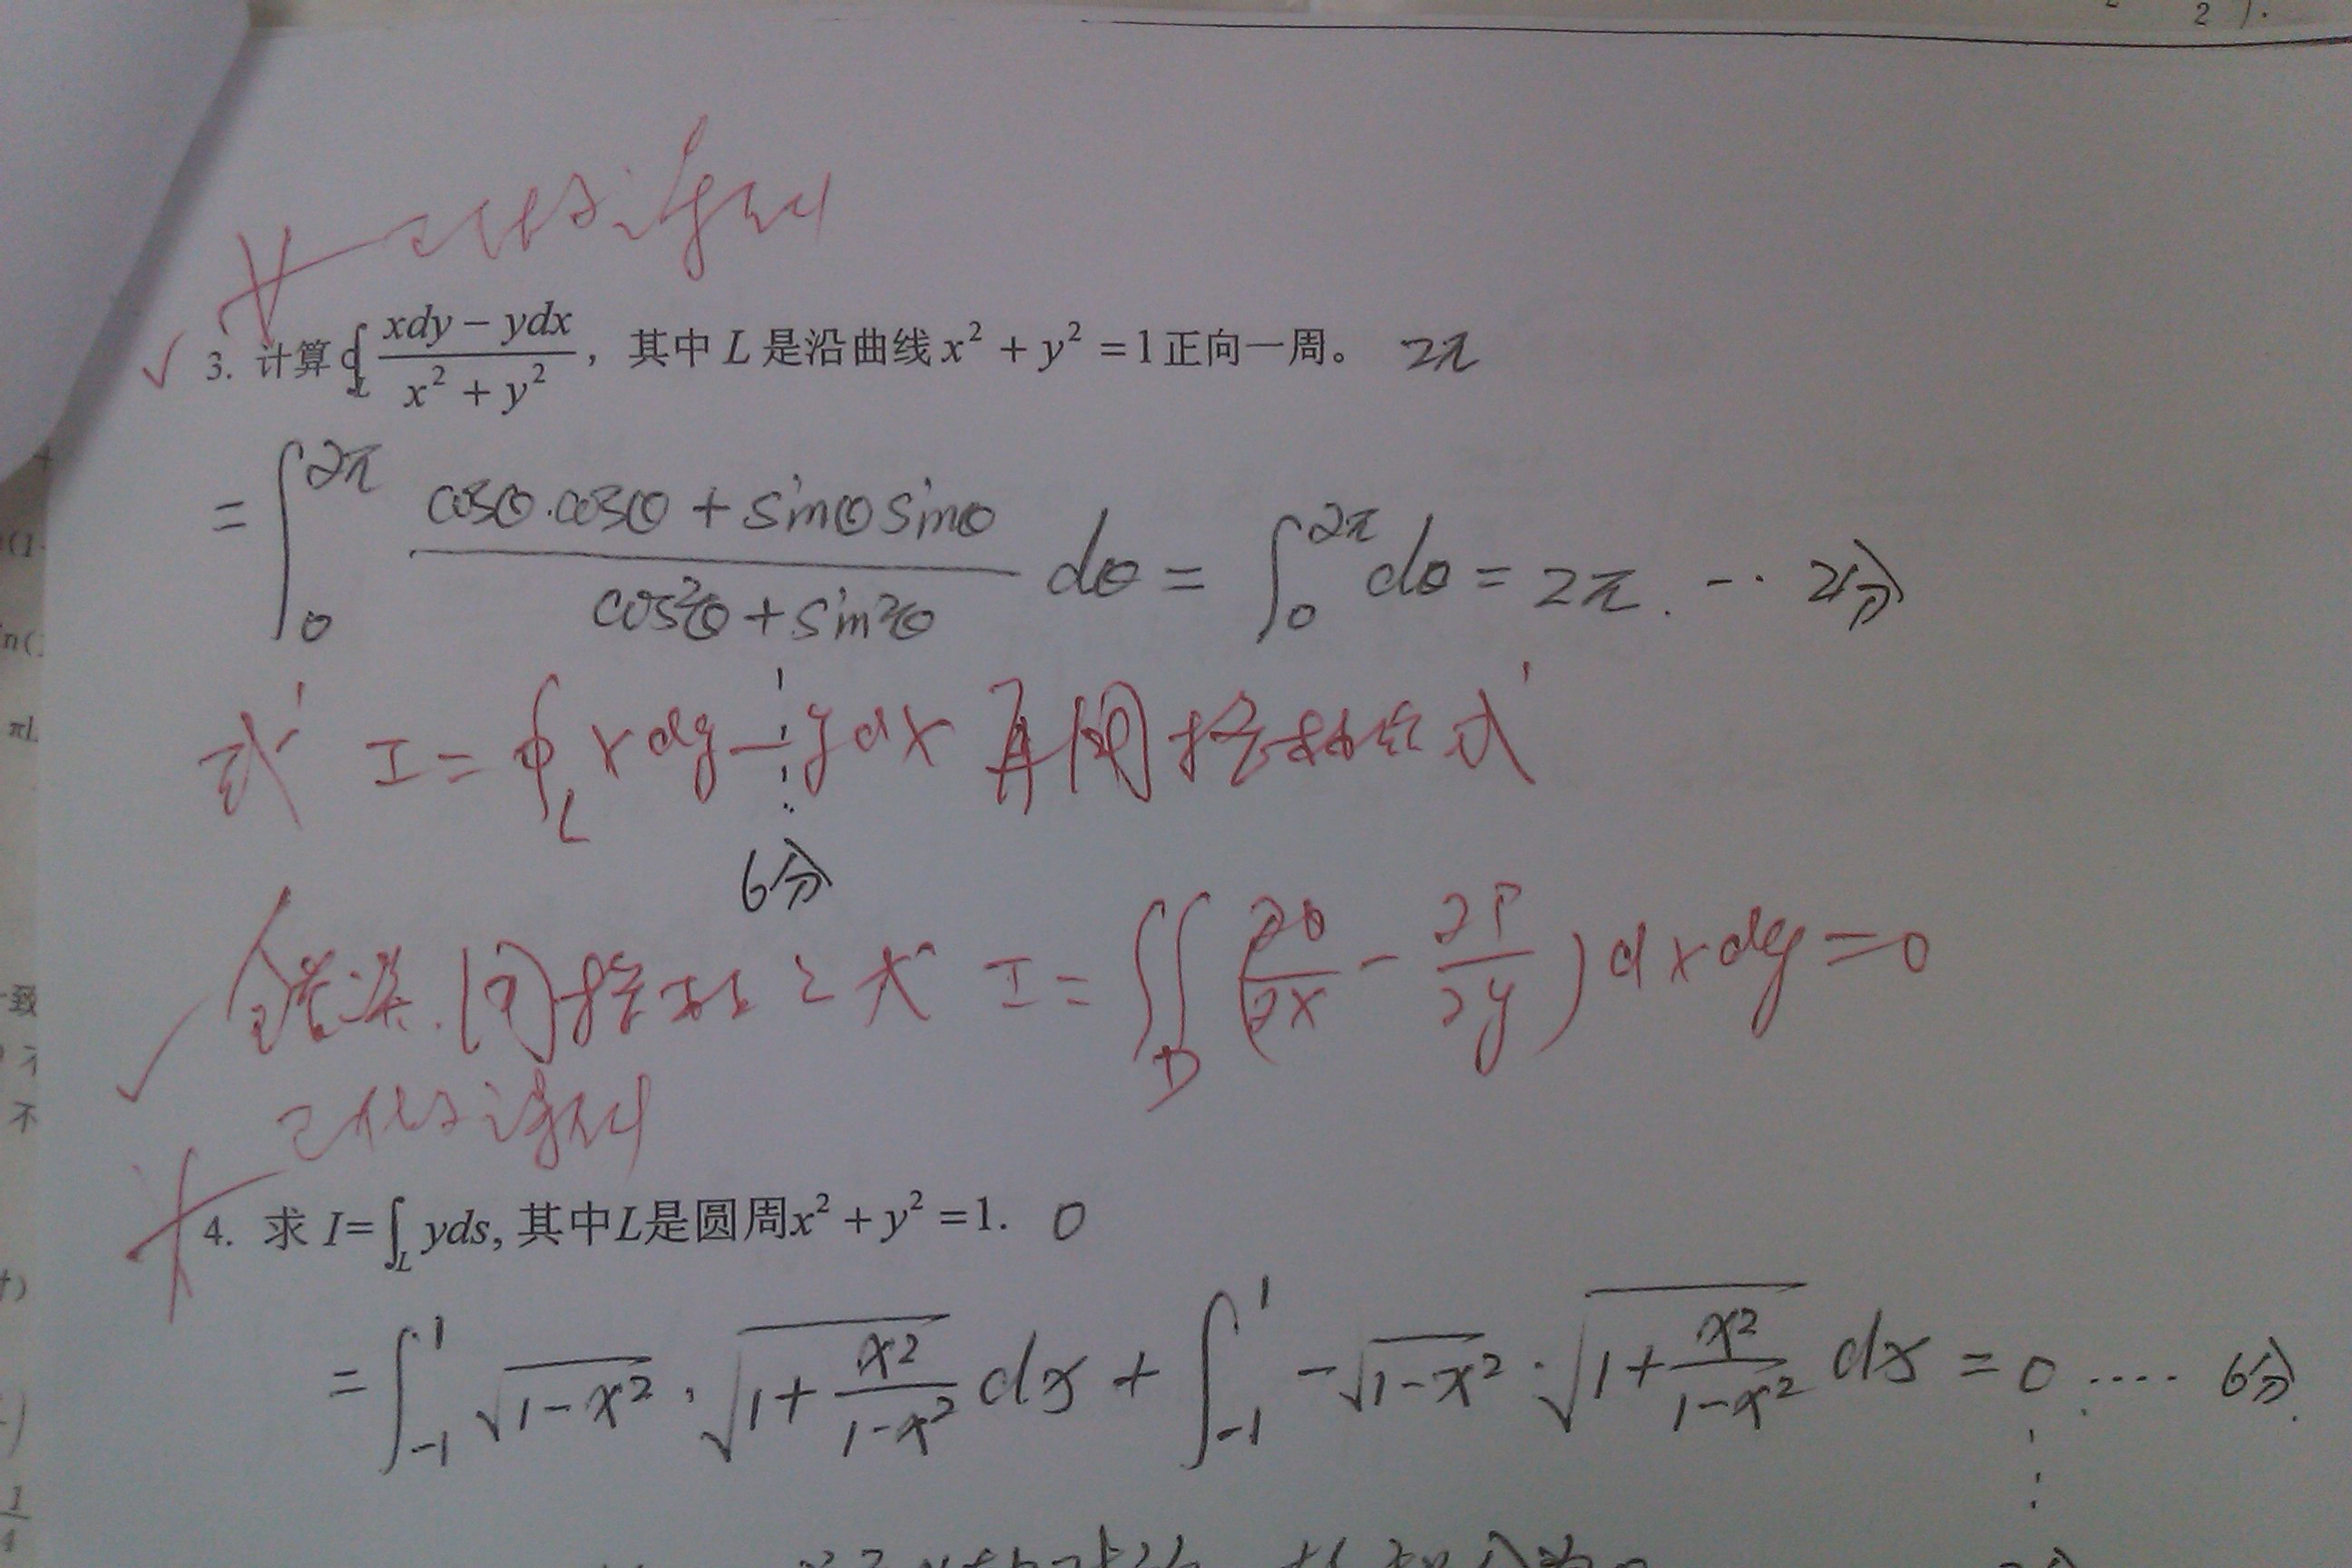 2 ).
3. 计算∮_L (xdy − ydx)/(x² + y²)，其中 L 是沿曲线 x² + y² = 1 正向一周。 2π
= ∫_0^{2π} (cosθ·cosθ + sinθ sinθ)/(cos²θ + sin²θ) dθ = ∫_0^{2π} dθ = 2π. -·· 2分
或 I = ∮_L xdy − ydx 再用格林公式
6分
错误.用格林公式 I = ∬_D (∂Q/∂x − ∂P/∂y) dxdy = 0
4. 求 I=∫_L yds, 其中L是圆周x² + y² =1. 0
= ∫_{-1}^{1} √(1−x²) · √(1 + x²/(1−x²)) dx + ∫_{-1}^{1} −√(1−x²) · √(1 + x²/(1−x²)) dx = 0 ···· 6分.